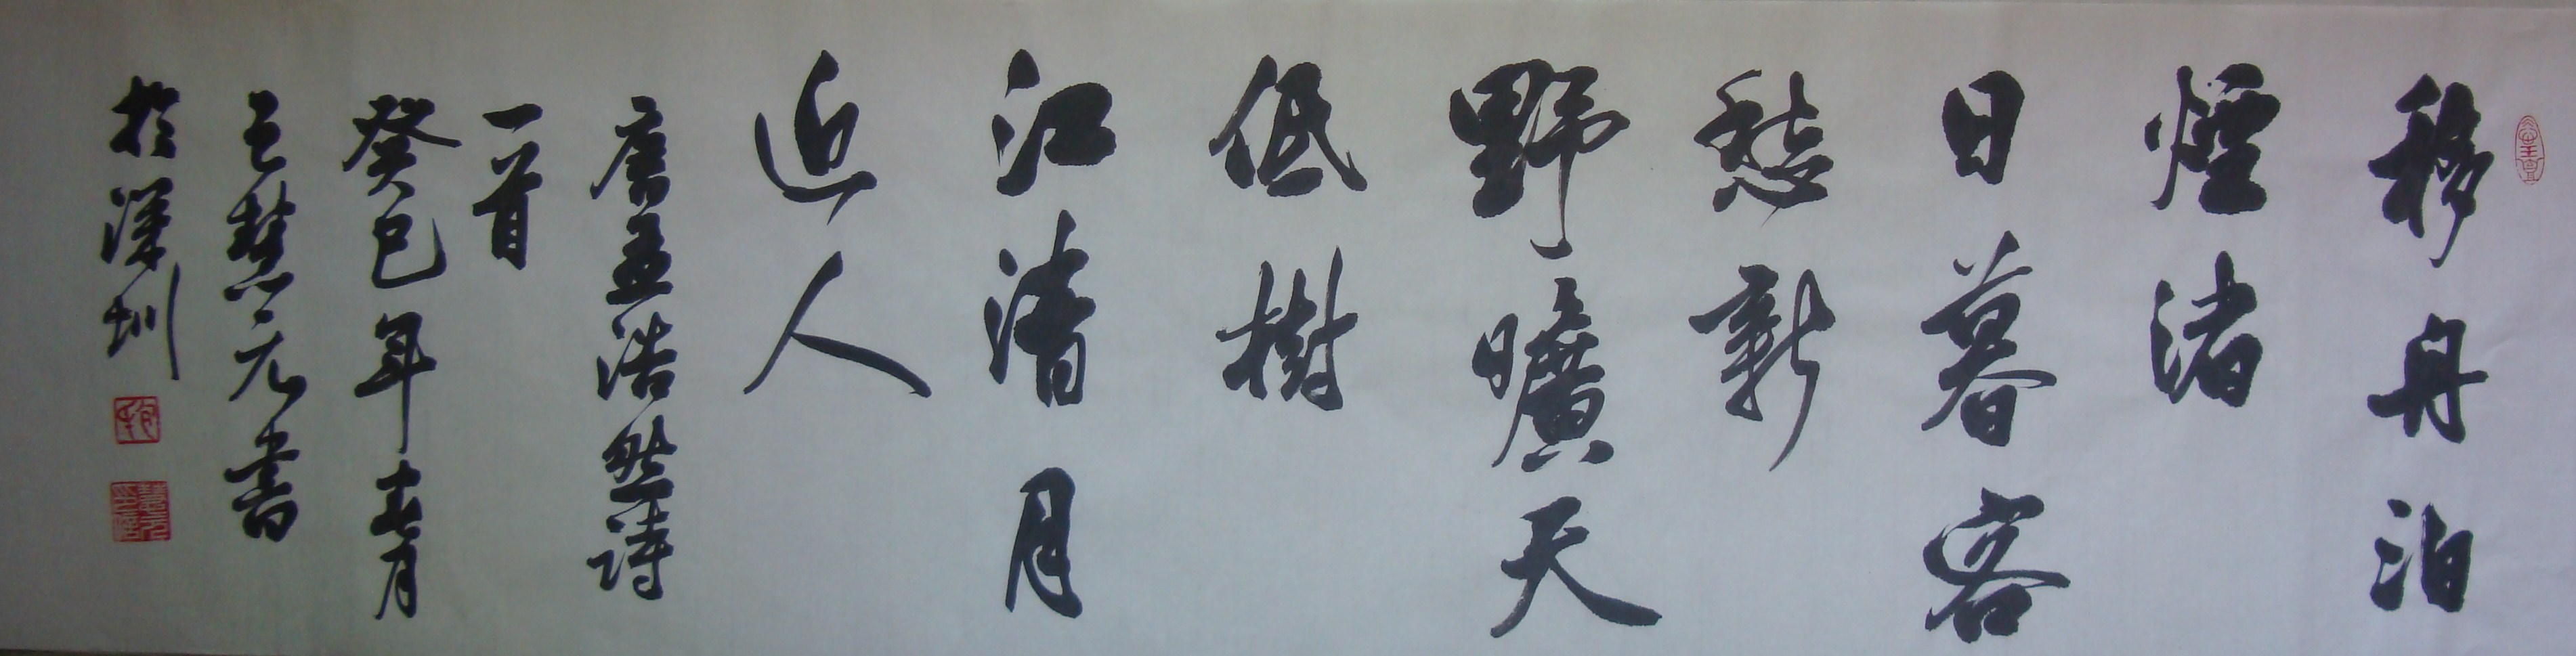 移舟泊
煙渚
日暮客
愁新
野曠天
低樹
江清月
近人
唐孟浩然詩
一首
癸巳年春月
元書
於深圳